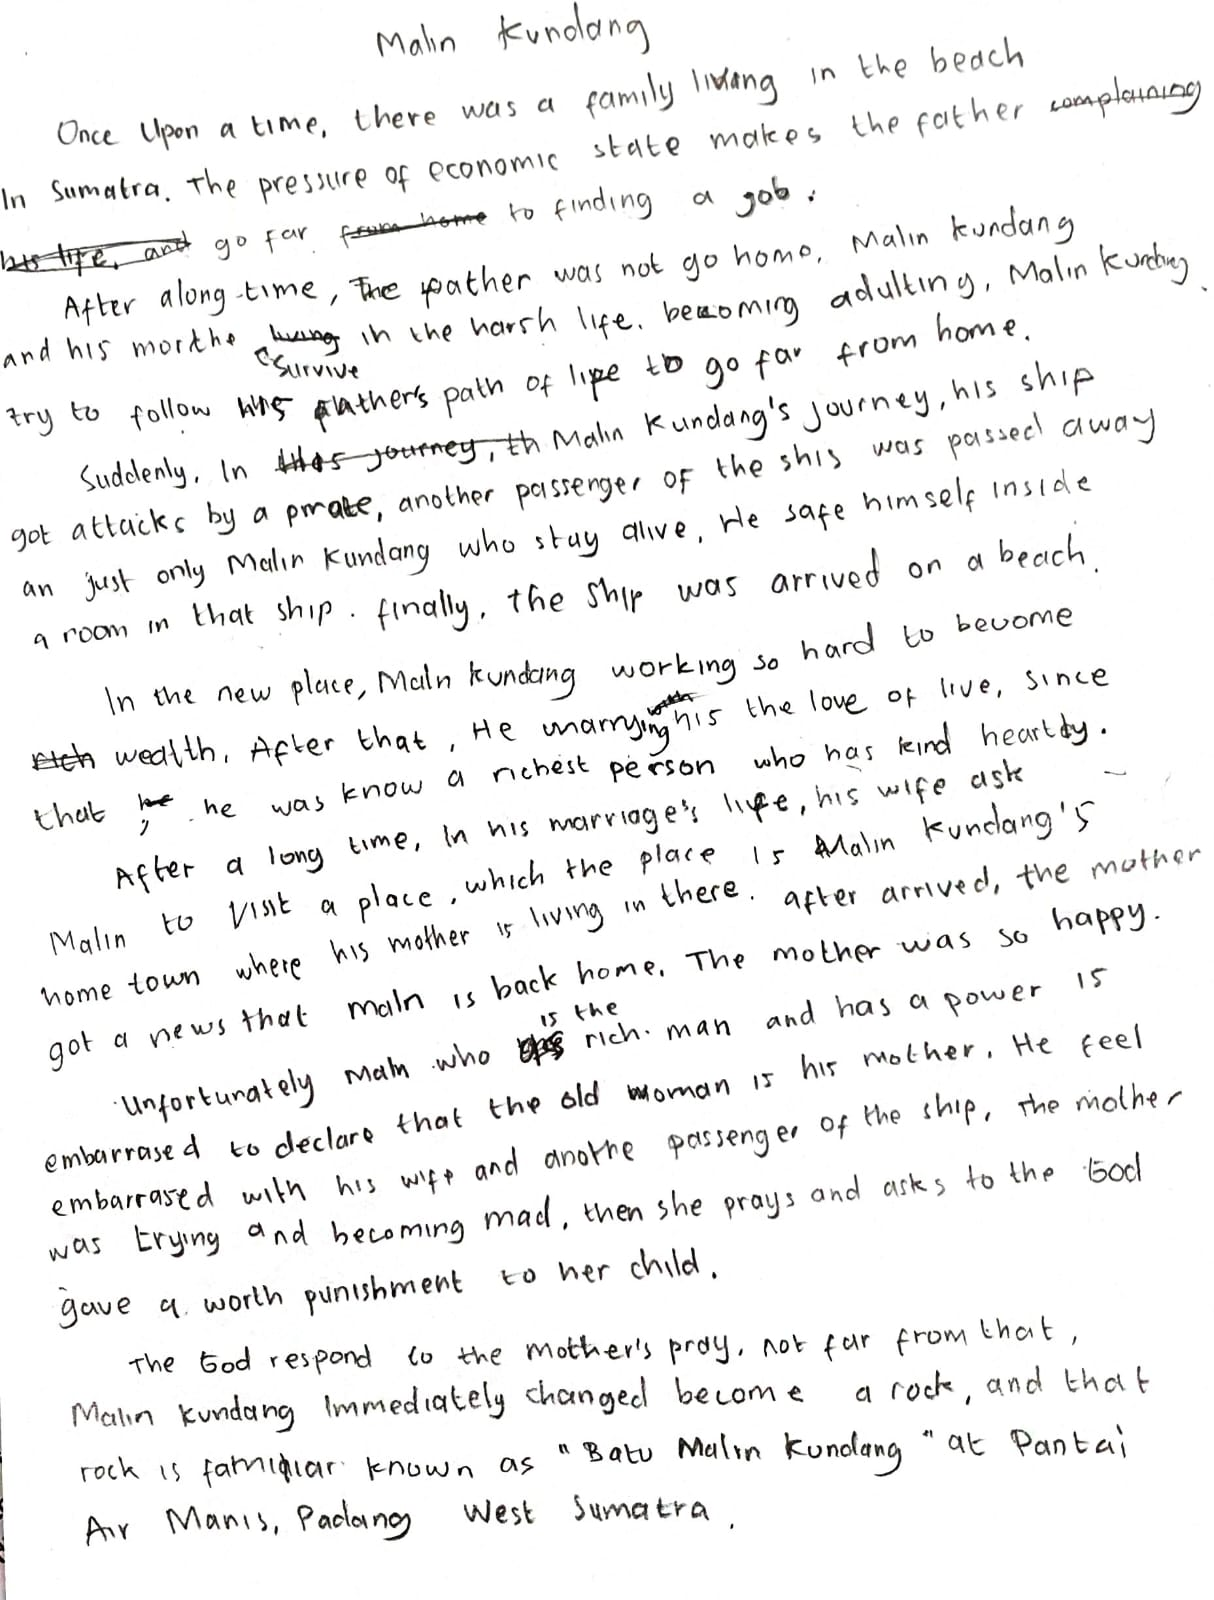 Malin Kundang
Once Upon a time, there was a family living in the beach
In Sumatra. The pressure of economic state makes the father complaining
his life, and go far from home to finding a job.
After along time, The father was not go home, Malin kundang
and his morthe living in the harsh life. becoming adulting, Malin Kundang
survive
try to follow his father's path of life to go far from home.
Suddenly, In this journey, th Malin Kundang's journey, his ship
got attacks by a pirate, another passenger of the shis was passed away
an just only Malin Kundang who stay alive, He safe himself inside
a room in that ship. finally, the Ship was arrived on a beach.
In the new place, Malin kundang working so hard to become
rich wealth. After that, He marrying with his the love of live, since
that he he was know a richest person who has kind heartdy.
After a long time, In his marriage's life, his wife ask
Malin to Visit a place, which the place is Malin Kundang's
home town where his mother is living in there. after arrived, the mother
got a news that malin is back home. The mother was so happy.
is the
Unfortunately malin who rich man and has a power is
embarrased to declare that the old woman is his mother. He feel
embarrased with his wife and anothe passenger of the ship, The mother
was trying and becoming mad, then she prays and asks to the God
gave a worth punishment to her child.
The God respond to the mother's pray, not far from that,
Malin kundang Immediately changed become a rock, and that
rock is familiar known as "Batu Malin Kundang" at Pantai
Air Manis, Padang West Sumatra.